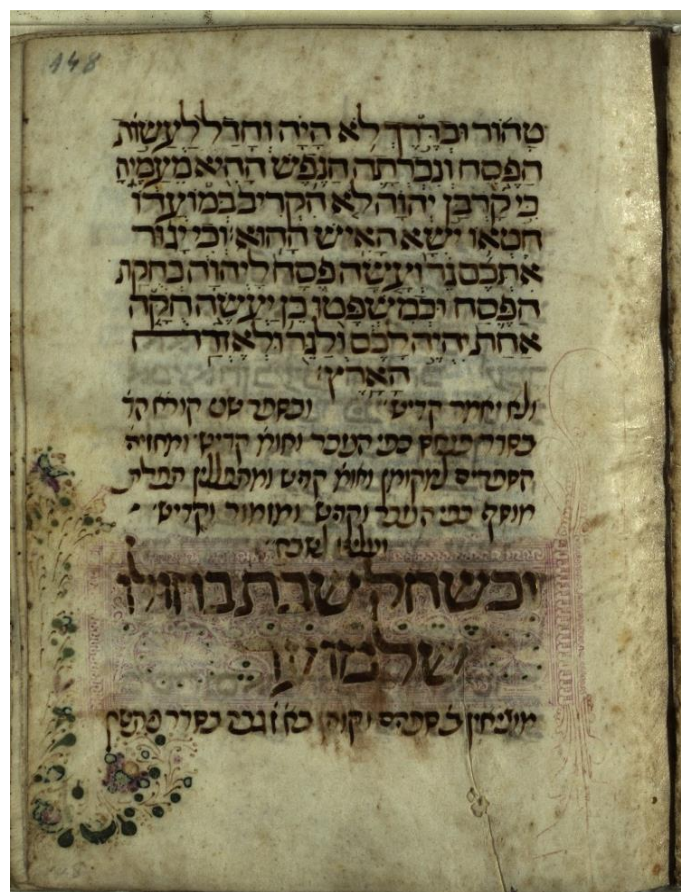 148
טָהוֹר וּבְדֶרֶךְ לֹא הָיָה וְחָדַל לַעֲשׂוֹת
הַפֶּסַח וְנִכְרְתָה הַנֶּפֶשׁ הַהִיא מֵעַמֶּיהָ
כִּי קָרְבַּן יְהוָה לֹא הִקְרִיב בְּמוֹעֲדוֹ
חֶטְאוֹ יִשָּׂא הָאִישׁ הַהוּא וְכִי יָגוּר
אִתְּכֶם גֵּר וְעָשָׂה פֶסַח לַיהוָה כְּחֻקַּת
הַפֶּסַח וּכְמִשְׁפָּטוֹ כֵּן יַעֲשֶׂה חֻקָּה
אַחַת יִהְיֶה לָכֶם וְלַגֵּר וּלְאֶזְרַח
הָאָרֶץ
ולא יאמר קדיש ובספר שני קורא
בסדר פנחס כפי העבר ואומ' קדיש ומחזיר
הספרים למקומן ואומ' קדיש ומתפללין תפלת
מוסף כפי העבר וקדיש ומזמור וקדיש
ועלינו לשבח
וכשחל שבת בחולו
של מועד
מוציאין ספרים